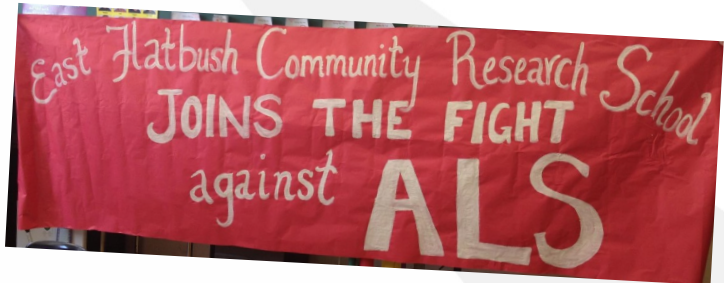 East Flatbush Community Research School
JOINS THE FIGHT
against ALS